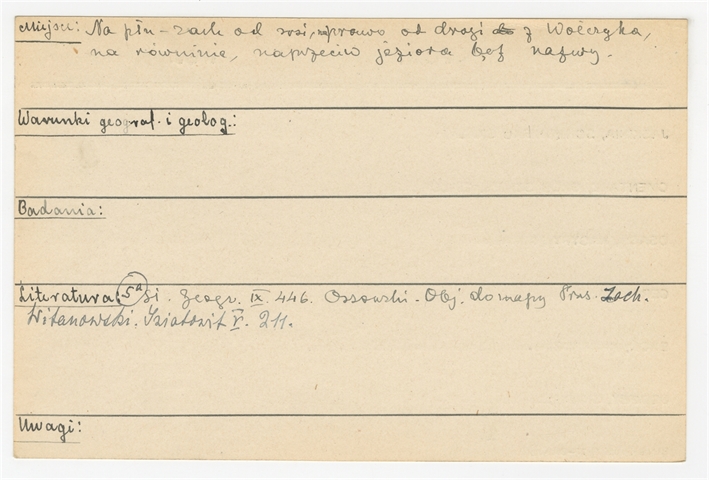 Miejsce: Na płn-zach od wsi, wprawo od drogi z
na równinie, naprzeciw jeziora bez nazwy.
Warunki geograf. i geolog.:
Badania:
Literatura: 5a Sł. geogr. IX. 446. Ossowski. Obj. do mapy Prus. Zach.
Witanowski. Światowit V. 211.
Uwagi: